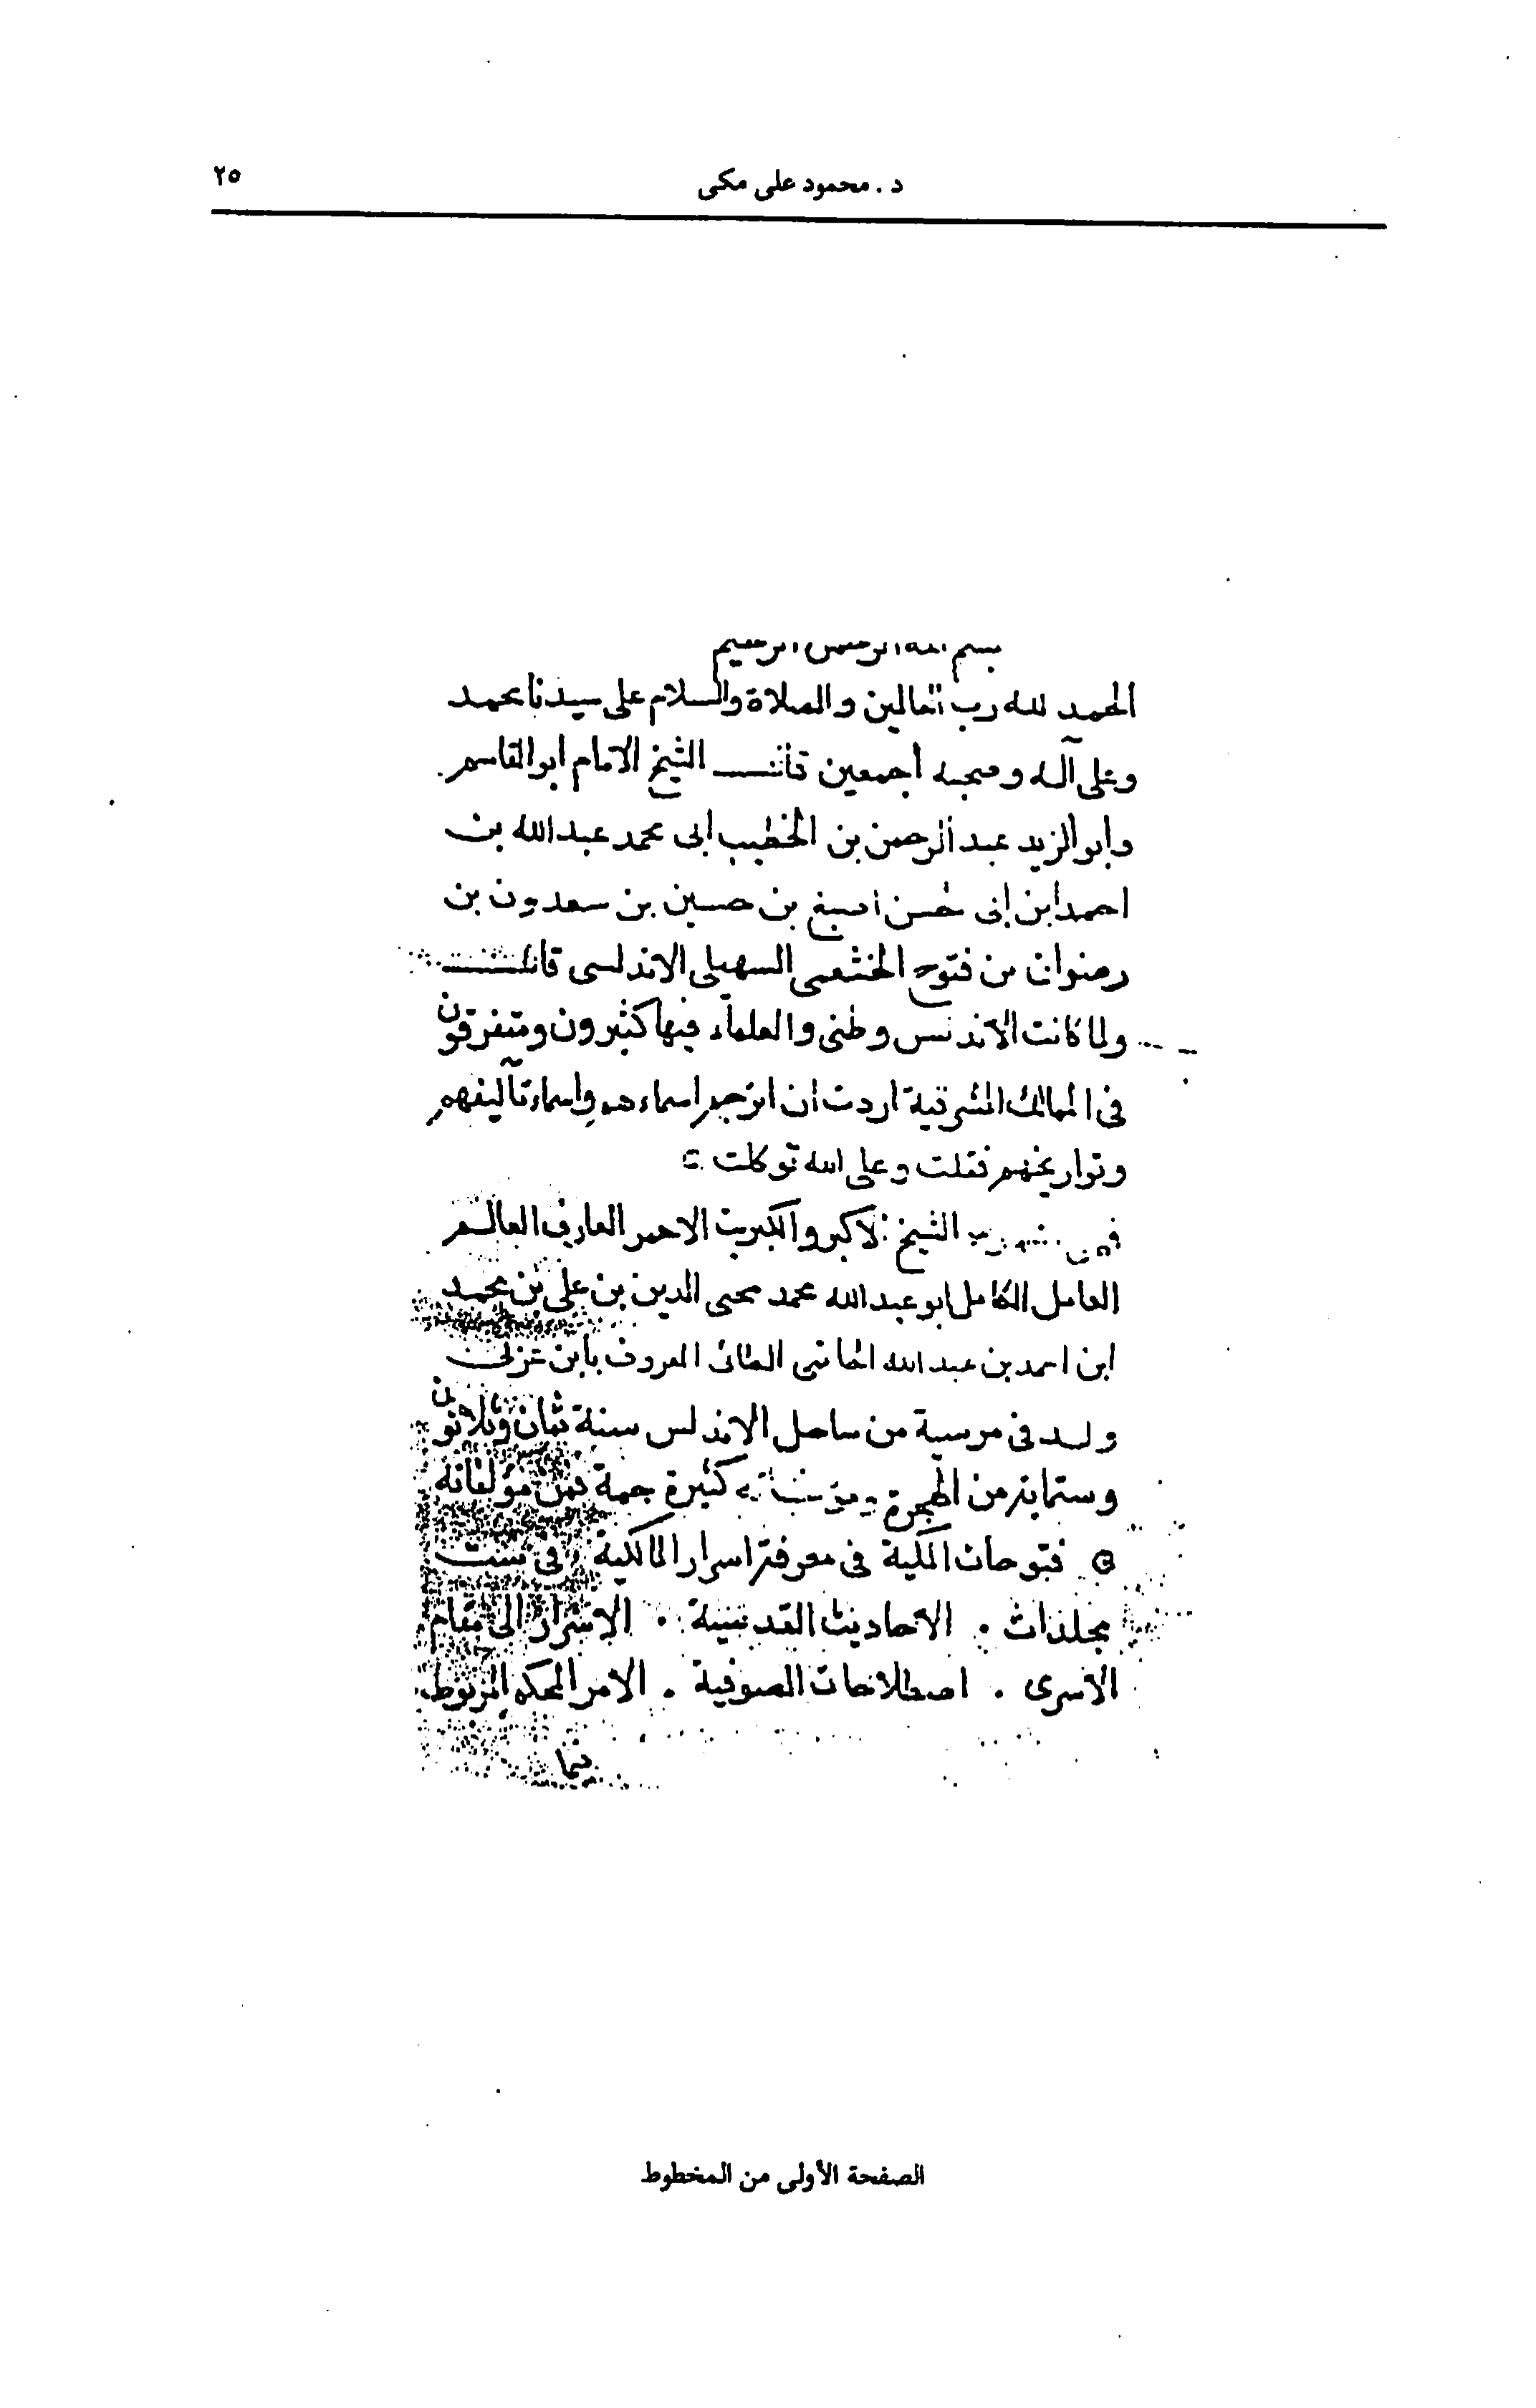 د . محمود على مكى
٢٥
بسم الله الرحمن الرحيم
الحمد لله رب العالمين والصلاة والسلام على سيدنا محمد
وعلى آله وصحبه أجمعين قال الشيخ الامام ابو القاسم
وابو الزيد عبد الرحمن بن الخطيب ابى محمد عبد الله بن
احمد ابن ابى حسن اصبغ بن حسين بن سعدون بن
رضوان بن فتوح الخثعمى السهيلى الاندلسى قال
ولما كانت الاندلس وطنى والعلماء فيها كثيرون ومتفرقون
فى الممالك المشرقية اردت ان اترجم اسماءهم واسماء تآليفهم
وتواريخهم فقلت وعلى الله توكلت
الشيخ الاكبر والكبريت الاحمر العارف العالم
العامل الكامل ابو عبد الله محمد محيى الدين بن على بن محمد
ابن احمد بن عبد الله الحاتمى الطائى المعروف بابن عربى
ولد فى مرسية من ساحل الاندلس سنة ثمان وثلاثون
وستماية من الهجرة كثيرة جمة فمن مؤلفاته
فتوحات المكية فى معرفة اسرار المالكية فى ست
مجلدات . الاحاديث القدسية . الاسرار الى مقام
الاسرى . اصطلاحات الصوفية . الامر المحكم المربوط
فيما
الصفحة الأولى من المخطوط